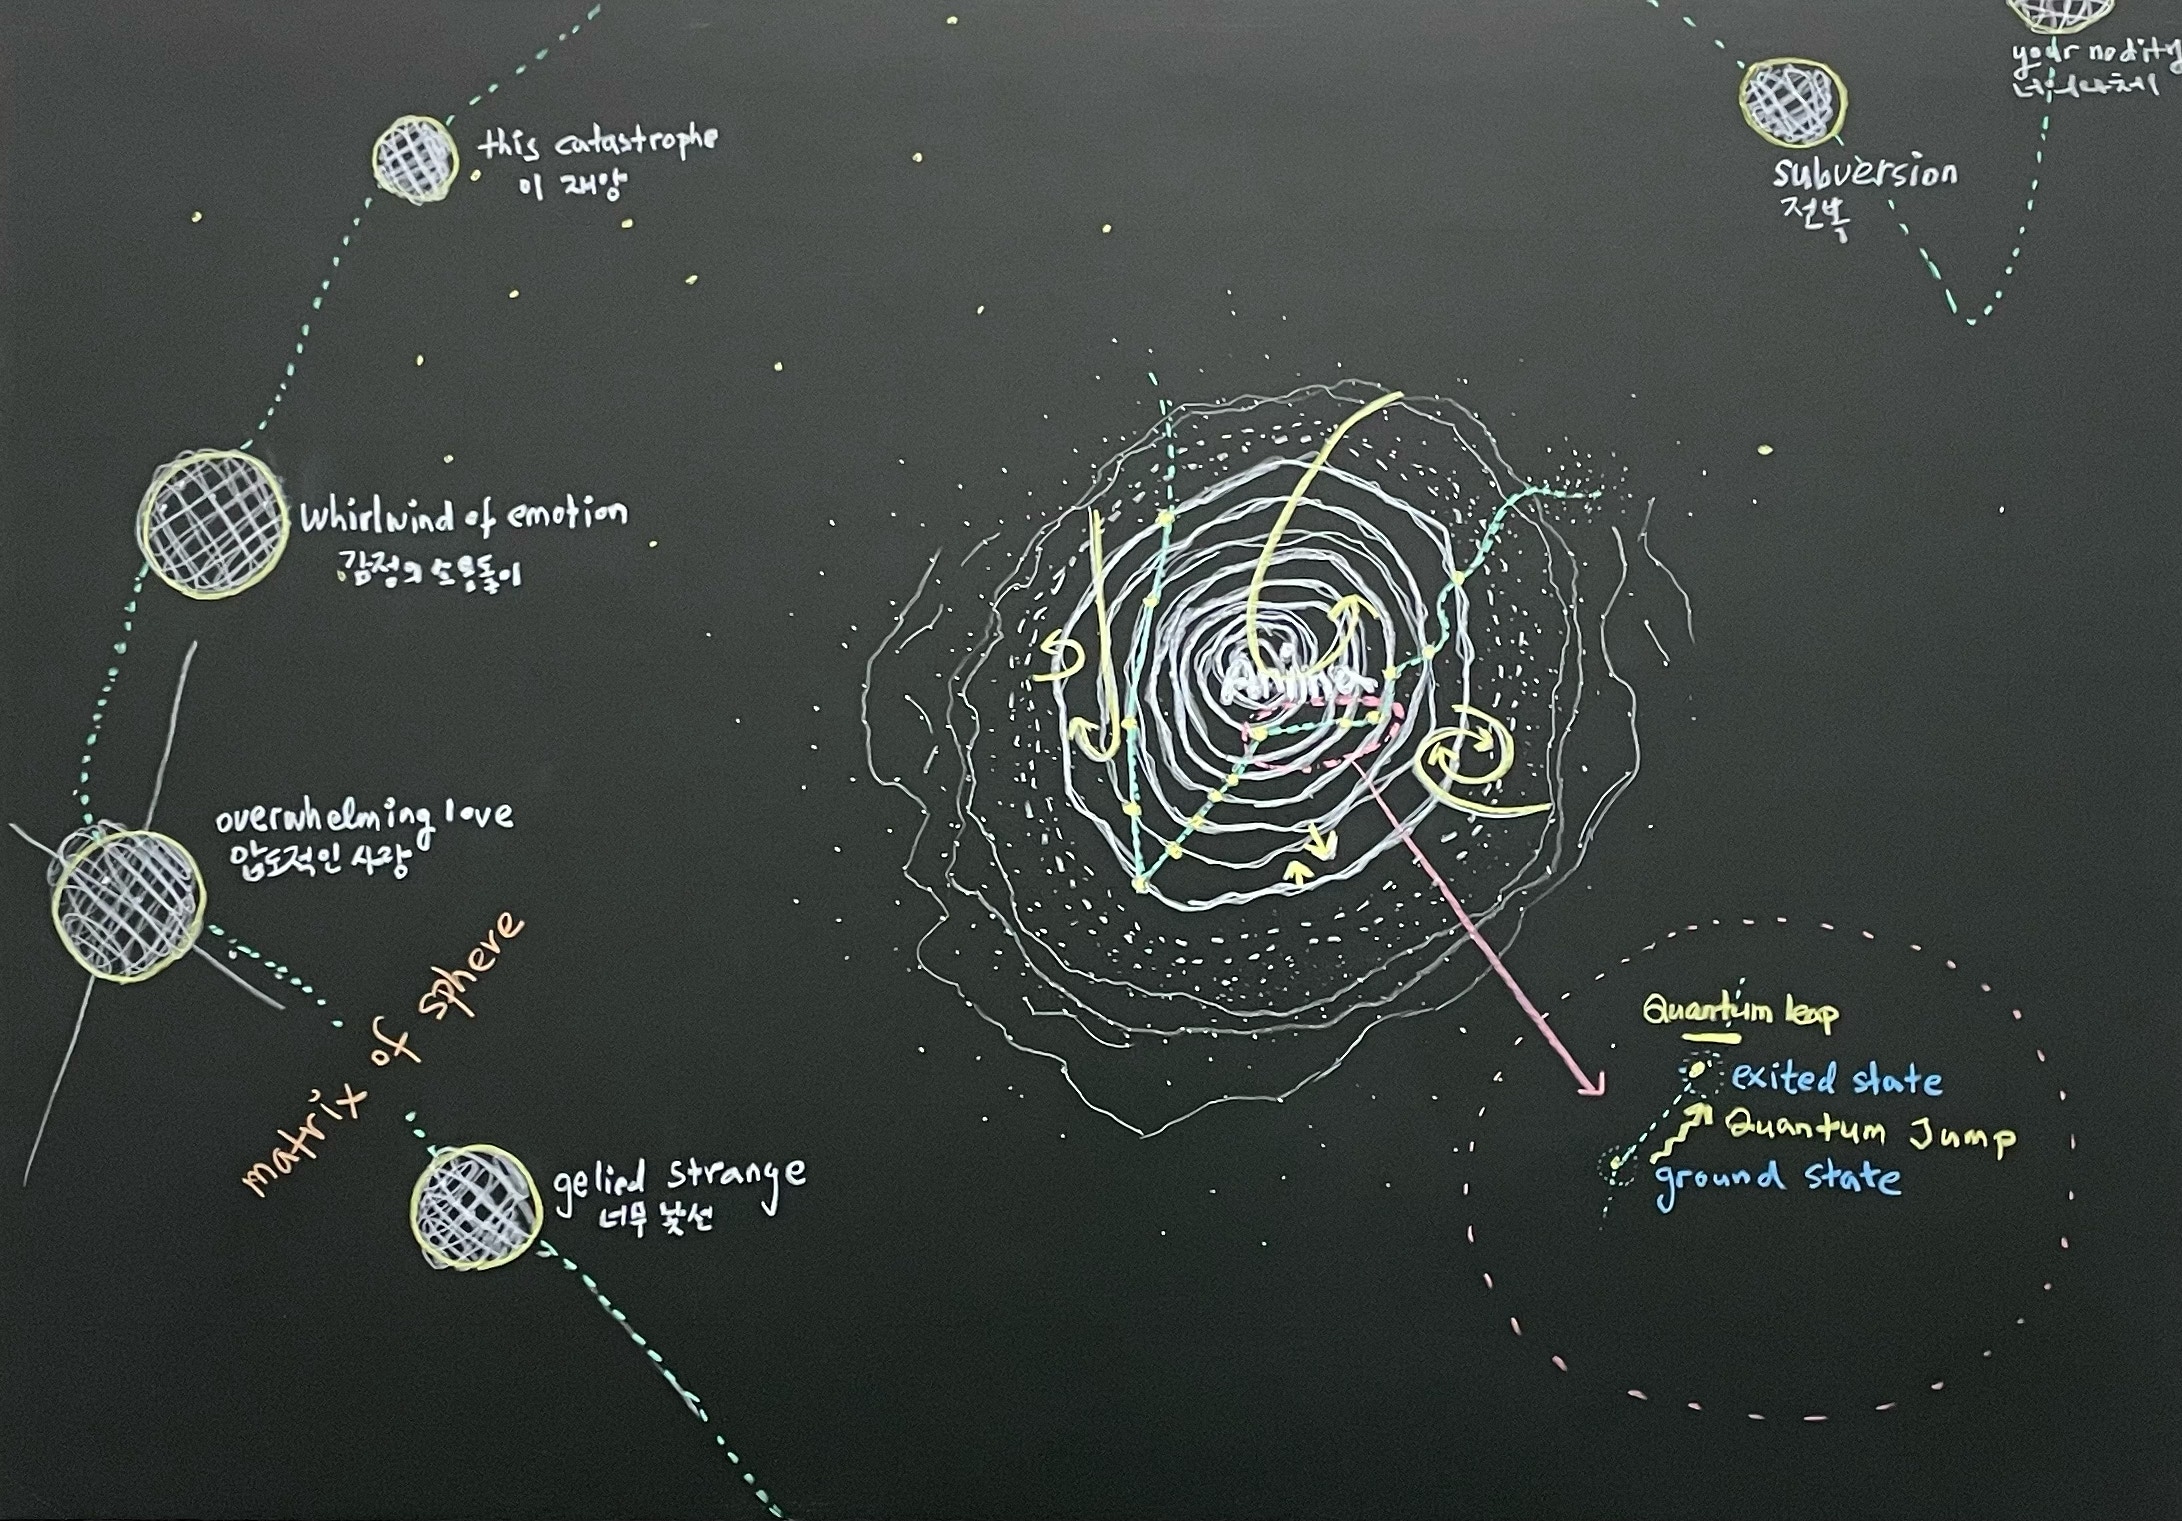 this catastrophe
이 재앙
subversion
전복
your nodity
너의 나체
whirlwind of emotion
감정의 소용돌이
Anima
overwhelming love
압도적인 사랑
matrix of sphere
gelied strange
너무 낯선
Quantum leap
exited state
Quantum Jump
ground state